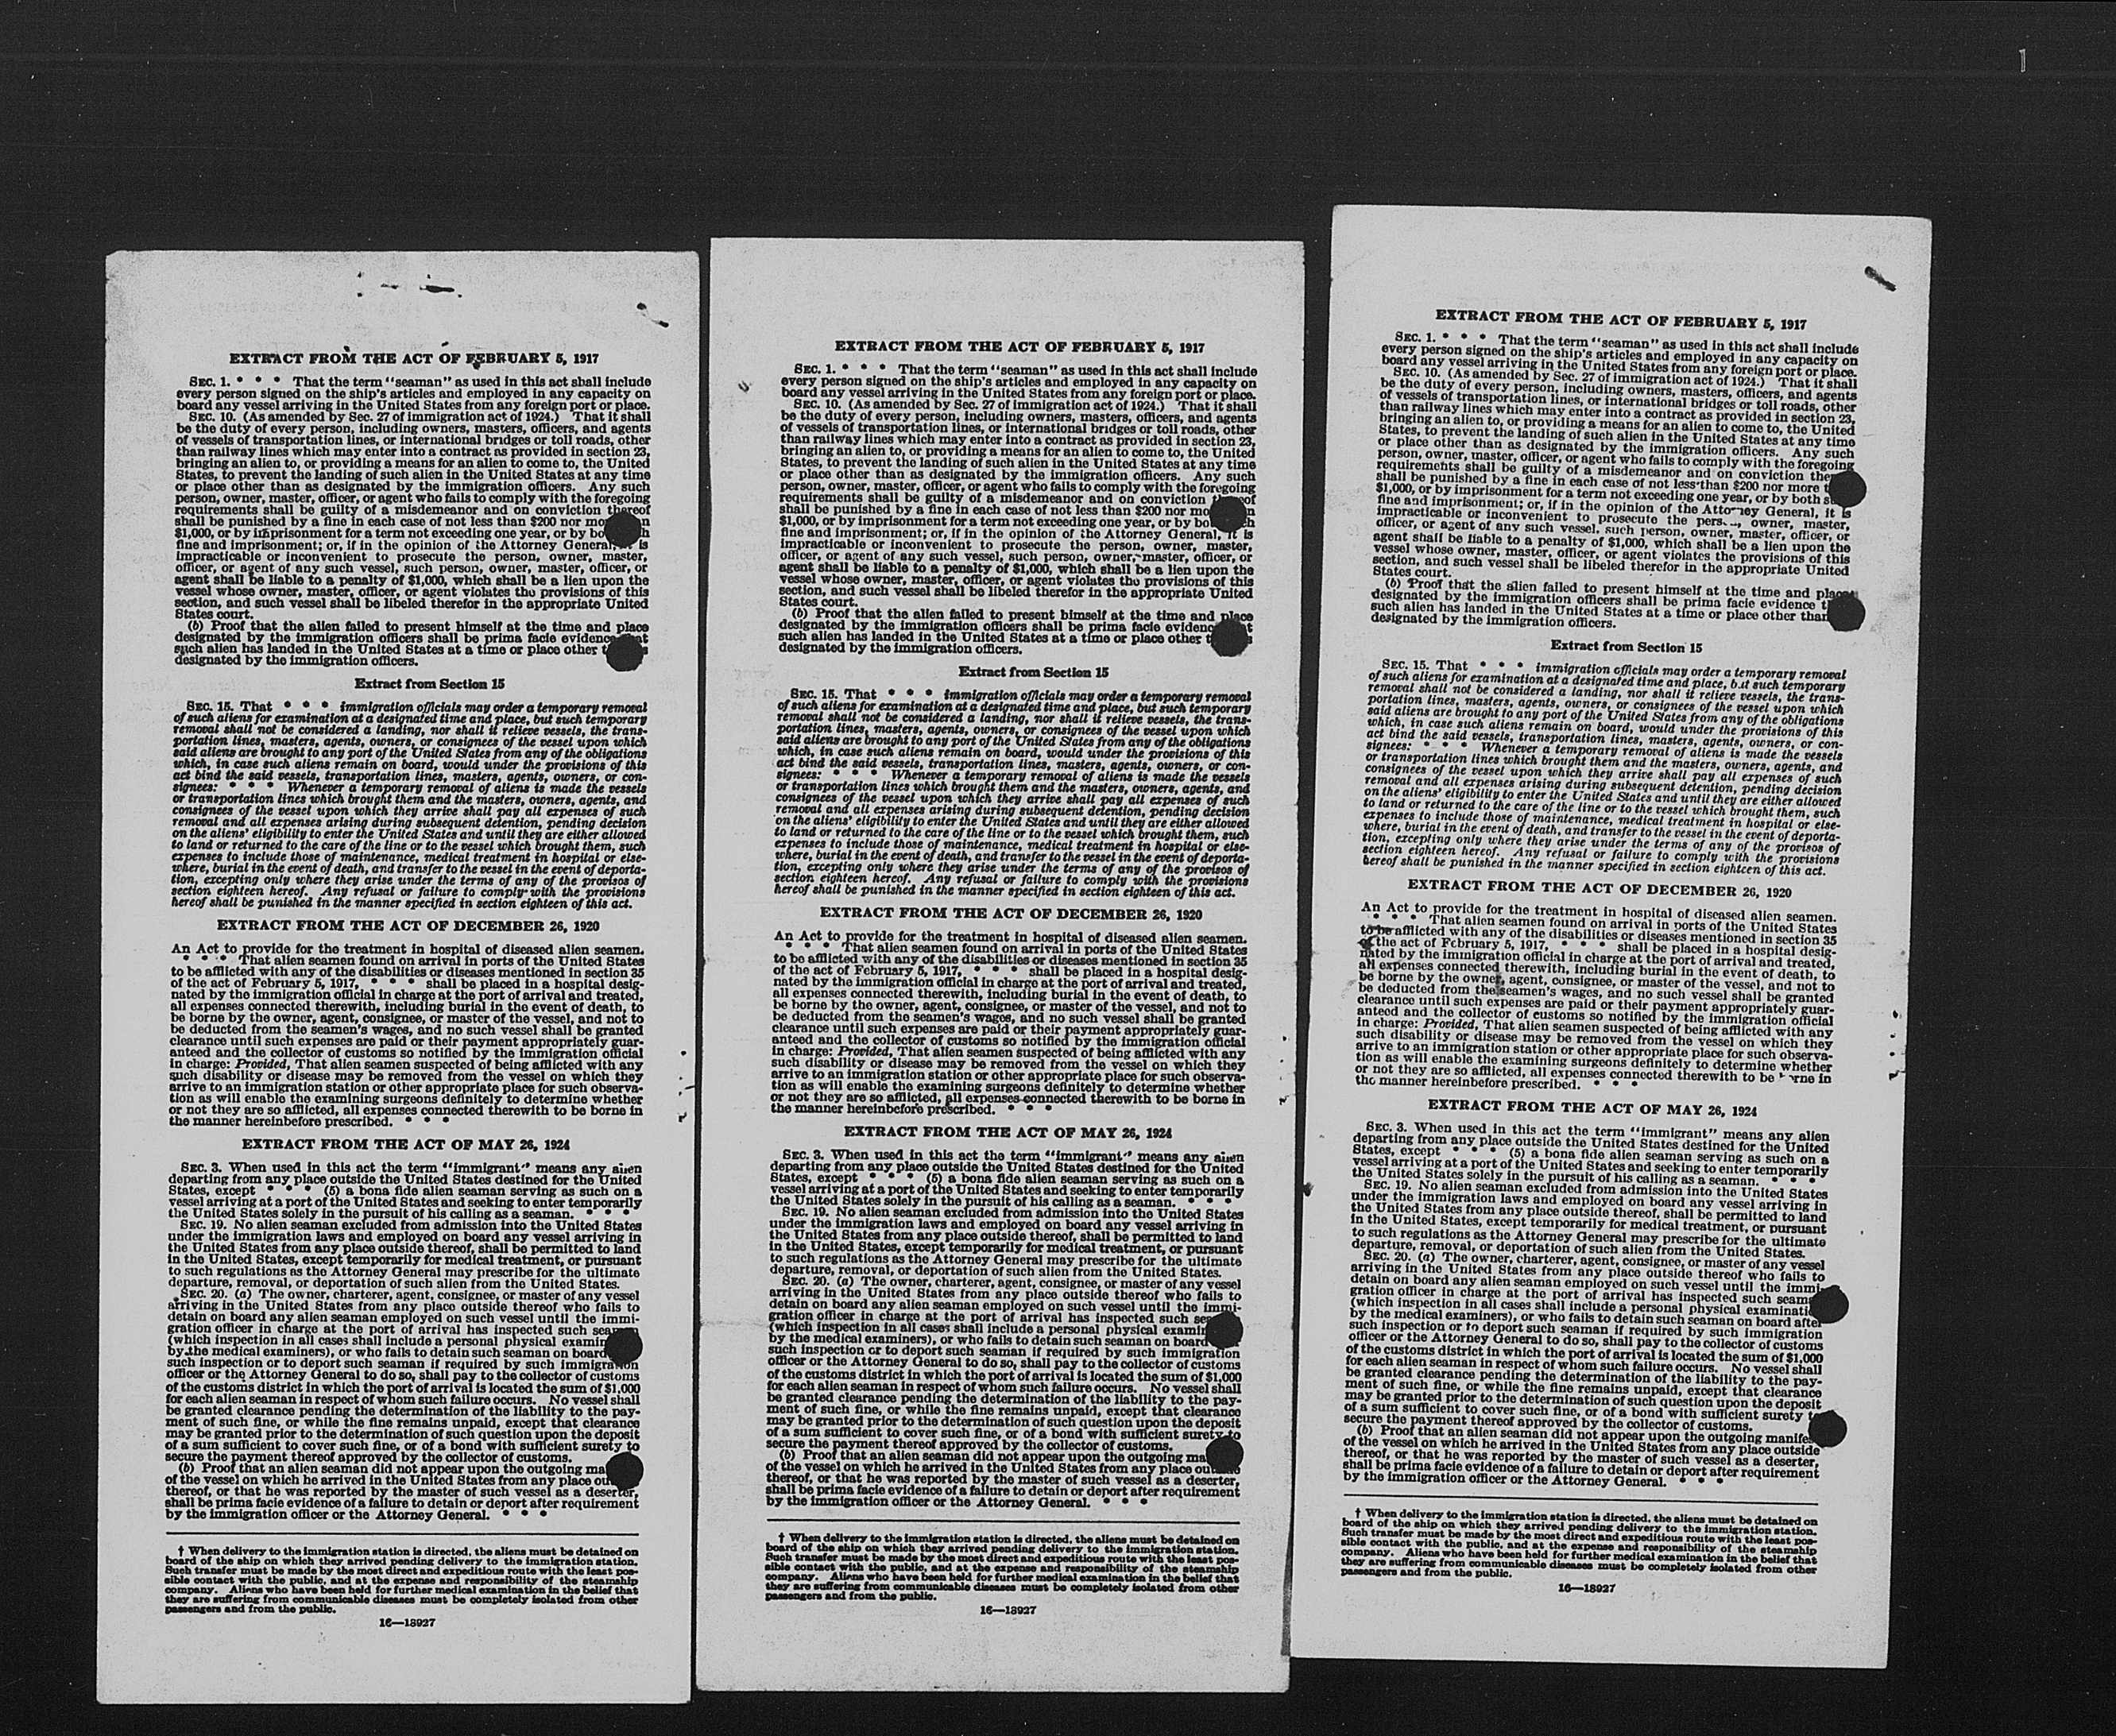 EXTRACT FROM THE ACT OF FEBRUARY 5, 1917
SEC. 1. * * * That the term "seaman" as used in this act shall include
every person signed on the ship's articles and employed in any capacity on
board any vessel arriving in the United States from any foreign port or place.
SEC. 10. (As amended by Sec. 27 of immigration act of 1924.) That it shall
be the duty of every person, including owners, masters, officers, and agents
of vessels of transportation lines, or international bridges or toll roads, other
than railway lines which may enter into a contract as provided in section 23,
bringing an alien to, or providing a means for an alien to come to, the United
States, to prevent the landing of such alien in the United States at any time
or place other than as designated by the immigration officers. Any such
person, owner, master, officer, or agent who fails to comply with the foregoing
requirements shall be guilty of a misdemeanor and on conviction thereof
shall be punished by a fine in each case of not less than $200 nor
$1,000, or by imprisonment for a term not exceeding one year, or by
fine and imprisonment; or, if in the opinion of the Attorney General, is
impracticable or inconvenient to prosecute the person, owner, master,
officer, or agent of any such vessel, such person, owner, master, officer, or
agent shall be liable to a penalty of $1,000, which shall be a lien upon the
vessel whose owner, master, officer, or agent violates the provisions of this
section, and such vessel shall be libeled therefor in the appropriate United
States court.
(b) Proof that the alien failed to present himself at the time and place
designated by the immigration officers shall be prima facie evidence
such alien has landed in the United States at a time or place other
designated by the immigration officers.
Extract from Section 15
SEC. 15. That * * * immigration officials may order a temporary removal
of such aliens for examination at a designated time and place, but such temporary
removal shall not be considered a landing, nor shall it relieve vessels, the trans-
portation lines, masters, agents, owners, or consignees of the vessel upon which
said aliens are brought to any port of the United States from any of the obligations
which, in case such aliens remain on board, would under the provisions of this
act bind the said vessels, transportation lines, masters, agents, owners, or con-
signees: * * * Whenever a temporary removal of aliens is made the vessels
or transportation lines which brought them and the masters, owners, agents, and
consignees of the vessel upon which they arrive shall pay all expenses of such
removal and all expenses arising during subsequent detention, pending decision
on the aliens' eligibility to enter the United States and until they are either allowed
to land or returned to the care of the line or to the vessel which brought them, such
expenses to include those of maintenance, medical treatment in hospital or else-
where, burial in the event of death, and transfer to the vessel in the event of deporta-
tion, excepting only where they arise under the terms of any of the provisos of
section eighteen hereof. Any refusal or failure to comply with the provisions
hereof shall be punished in the manner specified in section eighteen of this act.
EXTRACT FROM THE ACT OF DECEMBER 26, 1920
An Act to provide for the treatment in hospital of diseased alien seamen.
* * * That alien seamen found on arrival in ports of the United States
to be afflicted with any of the disabilities or diseases mentioned in section 35
of the act of February 5, 1917, * * * shall be placed in a hospital desig-
nated by the immigration official in charge at the port of arrival and treated,
all expenses connected therewith, including burial in the event of death, to
be borne by the owner, agent, consignee, or master of the vessel, and not to
be deducted from the seamen's wages, and no such vessel shall be granted
clearance until such expenses are paid or their payment appropriately guar-
anteed and the collector of customs so notified by the immigration official
in charge: Provided, That alien seamen suspected of being afflicted with any
such disability or disease may be removed from the vessel on which they
arrive to an immigration station or other appropriate place for such observa-
tion as will enable the examining surgeons definitely to determine whether
or not they are so afflicted, all expenses connected therewith to be borne in
the manner hereinbefore prescribed. * * *
EXTRACT FROM THE ACT OF MAY 26, 1924
SEC. 3. When used in this act the term "immigrant" means any alien
departing from any place outside the United States destined for the United
States, except * * * (5) a bona fide alien seaman serving as such on a
vessel arriving at a port of the United States and seeking to enter temporarily
the United States solely in the pursuit of his calling as a seaman. * * *
SEC. 19. No alien seaman excluded from admission into the United States
under the immigration laws and employed on board any vessel arriving in
the United States from any place outside thereof, shall be permitted to land
in the United States, except temporarily for medical treatment, or pursuant
to such regulations as the Attorney General may prescribe for the ultimate
departure, removal, or deportation of such alien from the United States.
SEC. 20. (a) The owner, charterer, agent, consignee, or master of any vessel
arriving in the United States from any place outside thereof who fails to
detain on board any alien seaman employed on such vessel until the immi-
gration officer in charge at the port of arrival has inspected such
(which inspection in all cases shall include a personal physical
by the medical examiners), or who fails to detain such seaman on board
such inspection or to deport such seaman if required by such immigration
officer or the Attorney General to do so, shall pay to the collector of customs
of the customs district in which the port of arrival is located the sum of $1,000
for each alien seaman in respect of whom such failure occurs. No vessel shall
be granted clearance pending the determination of the liability to the pay-
ment of such fine, or while the fine remains unpaid, except that clearance
may be granted prior to the determination of such question upon the deposit
of a sum sufficient to cover such fine, or of a bond with sufficient surety to
secure the payment thereof approved by the collector of customs.
(b) Proof that an alien seaman did not appear upon the outgoing
of the vessel on which he arrived in the United States from any place
thereof, or that he was reported by the master of such vessel as a deserter,
shall be prima facie evidence of a failure to detain or deport after requirement
by the immigration officer or the Attorney General. * * *
† When delivery to the immigration station is directed, the aliens must be detained on
board of the ship on which they arrived pending delivery to the immigration station.
Such transfer must be made by the most direct and expeditious route with the least pos-
sible contact with the public, and at the expense and responsibility of the steamship
company. Aliens who have been held for further medical examination in the belief that
they are suffering from communicable diseases must be completely isolated from other
passengers and from the public.
16—18927
EXTRACT FROM THE ACT OF FEBRUARY 5, 1917
SEC. 1. * * * That the term "seaman" as used in this act shall include
every person signed on the ship's articles and employed in any capacity on
board any vessel arriving in the United States from any foreign port or place.
SEC. 10. (As amended by Sec. 27 of immigration act of 1924.) That it shall
be the duty of every person, including owners, masters, officers, and agents
of vessels of transportation lines, or international bridges or toll roads, other
than railway lines which may enter into a contract as provided in section 23,
bringing an alien to, or providing a means for an alien to come to, the United
States, to prevent the landing of such alien in the United States at any time
or place other than as designated by the immigration officers. Any such
person, owner, master, officer, or agent who fails to comply with the foregoing
requirements shall be guilty of a misdemeanor and on conviction
shall be punished by a fine in each case of not less than $200 nor
$1,000, or by imprisonment for a term not exceeding one year, or by
fine and imprisonment; or, if in the opinion of the Attorney General, it is
impracticable or inconvenient to prosecute the person, owner, master,
officer, or agent of any such vessel, such person, owner, master, officer, or
agent shall be liable to a penalty of $1,000, which shall be a lien upon the
vessel whose owner, master, officer, or agent violates the provisions of this
section, and such vessel shall be libeled therefor in the appropriate United
States court.
(b) Proof that the alien failed to present himself at the time and place
designated by the immigration officers shall be prima facie
such alien has landed in the United States at a time or place other
designated by the immigration officers.
Extract from Section 15
SEC. 15. That * * * immigration officials may order a temporary removal
of such aliens for examination at a designated time and place, but such temporary
removal shall not be considered a landing, nor shall it relieve vessels, the trans-
portation lines, masters, agents, owners, or consignees of the vessel upon which
said aliens are brought to any port of the United States from any of the obligations
which, in case such aliens remain on board, would under the provisions of this
act bind the said vessels, transportation lines, masters, agents, owners, or con-
signees: * * * Whenever a temporary removal of aliens is made the vessels
or transportation lines which brought them and the masters, owners, agents, and
consignees of the vessel upon which they arrive shall pay all expenses of such
removal and all expenses arising during subsequent detention, pending decision
on the aliens' eligibility to enter the United States and until they are either allowed
to land or returned to the care of the line or to the vessel which brought them, such
expenses to include those of maintenance, medical treatment in hospital or else-
where, burial in the event of death, and transfer to the vessel in the event of deporta-
tion, excepting only where they arise under the terms of any of the provisos of
section eighteen hereof. Any refusal or failure to comply with the provisions
hereof shall be punished in the manner specified in section eighteen of this act.
EXTRACT FROM THE ACT OF DECEMBER 26, 1920
An Act to provide for the treatment in hospital of diseased alien seamen.
* * * That alien seamen found on arrival in ports of the United States
to be afflicted with any of the disabilities or diseases mentioned in section 35
of the act of February 5, 1917, * * * shall be placed in a hospital desig-
nated by the immigration official in charge at the port of arrival and treated,
all expenses connected therewith, including burial in the event of death, to
be borne by the owner, agent, consignee, or master of the vessel, and not to
be deducted from the seamen's wages, and no such vessel shall be granted
clearance until such expenses are paid or their payment appropriately guar-
anteed and the collector of customs so notified by the immigration official
in charge: Provided, That alien seamen suspected of being afflicted with any
such disability or disease may be removed from the vessel on which they
arrive to an immigration station or other appropriate place for such observa-
tion as will enable the examining surgeons definitely to determine whether
or not they are so afflicted, all expenses connected therewith to be borne in
the manner hereinbefore prescribed. * * *
EXTRACT FROM THE ACT OF MAY 26, 1924
SEC. 3. When used in this act the term "immigrant" means any alien
departing from any place outside the United States destined for the United
States, except * * * (5) a bona fide alien seaman serving as such on a
vessel arriving at a port of the United States and seeking to enter temporarily
the United States solely in the pursuit of his calling as a seaman. * * *
SEC. 19. No alien seaman excluded from admission into the United States
under the immigration laws and employed on board any vessel arriving in
the United States from any place outside thereof, shall be permitted to land
in the United States, except temporarily for medical treatment, or pursuant
to such regulations as the Attorney General may prescribe for the ultimate
departure, removal, or deportation of such alien from the United States.
SEC. 20. (a) The owner, charterer, agent, consignee, or master of any vessel
arriving in the United States from any place outside thereof who fails to
detain on board any alien seaman employed on such vessel until the immi-
gration officer in charge at the port of arrival has inspected such
(which inspection in all cases shall include a personal physical
by the medical examiners), or who fails to detain such seaman on board
such inspection or to deport such seaman if required by such immigration
officer or the Attorney General to do so, shall pay to the collector of customs
of the customs district in which the port of arrival is located the sum of $1,000
for each alien seaman in respect of whom such failure occurs. No vessel shall
be granted clearance pending the determination of the liability to the pay-
ment of such fine, or while the fine remains unpaid, except that clearance
may be granted prior to the determination of such question upon the deposit
of a sum sufficient to cover such fine, or of a bond with sufficient surety to
secure the payment thereof approved by the collector of customs.
(b) Proof that an alien seaman did not appear upon the outgoing
of the vessel on which he arrived in the United States from any place
thereof, or that he was reported by the master of such vessel as a deserter,
shall be prima facie evidence of a failure to detain or deport after requirement
by the immigration officer or the Attorney General. * * *
† When delivery to the immigration station is directed, the aliens must be detained on
board of the ship on which they arrived pending delivery to the immigration station.
Such transfer must be made by the most direct and expeditious route with the least pos-
sible contact with the public, and at the expense and responsibility of the steamship
company. Aliens who have been held for further medical examination in the belief that
they are suffering from communicable diseases must be completely isolated from other
passengers and from the public.
16—18927
EXTRACT FROM THE ACT OF FEBRUARY 5, 1917
SEC. 1. * * * That the term "seaman" as used in this act shall include
every person signed on the ship's articles and employed in any capacity on
board any vessel arriving in the United States from any foreign port or place.
SEC. 10. (As amended by Sec. 27 of immigration act of 1924.) That it shall
be the duty of every person, including owners, masters, officers, and agents
of vessels of transportation lines, or international bridges or toll roads, other
than railway lines which may enter into a contract as provided in section 23,
bringing an alien to, or providing a means for an alien to come to, the United
States, to prevent the landing of such alien in the United States at any time
or place other than as designated by the immigration officers. Any such
person, owner, master, officer, or agent who fails to comply with the foregoing
requirements shall be guilty of a misdemeanor and on conviction
shall be punished by a fine in each case of not less than $200 nor more
$1,000, or by imprisonment for a term not exceeding one year, or by both
fine and imprisonment; or, if in the opinion of the Attorney General, it is
impracticable or inconvenient to prosecute the owner, master,
officer, or agent of any such vessel, such person, owner, master, officer, or
agent shall be liable to a penalty of $1,000, which shall be a lien upon the
vessel whose owner, master, officer, or agent violates the provisions of this
section, and such vessel shall be libeled therefor in the appropriate United
States court.
(b) Proof that the alien failed to present himself at the time and place
designated by the immigration officers shall be prima facie evidence
such alien has landed in the United States at a time or place other than
designated by the immigration officers.
Extract from Section 15
SEC. 15. That * * * immigration officials may order a temporary removal
of such aliens for examination at a designated time and place, but such temporary
removal shall not be considered a landing, nor shall it relieve vessels, the trans-
portation lines, masters, agents, owners, or consignees of the vessel upon which
said aliens are brought to any port of the United States from any of the obligations
which, in case such aliens remain on board, would under the provisions of this
act bind the said vessels, transportation lines, masters, agents, owners, or con-
signees: * * * Whenever a temporary removal of aliens is made the vessels
or transportation lines which brought them and the masters, owners, agents, and
consignees of the vessel upon which they arrive shall pay all expenses of such
removal and all expenses arising during subsequent detention, pending decision
on the aliens' eligibility to enter the United States and until they are either allowed
to land or returned to the care of the line or to the vessel which brought them, such
expenses to include those of maintenance, medical treatment in hospital or else-
where, burial in the event of death, and transfer to the vessel in the event of deporta-
tion, excepting only where they arise under the terms of any of the provisos of
section eighteen hereof. Any refusal or failure to comply with the provisions
hereof shall be punished in the manner specified in section eighteen of this act.
EXTRACT FROM THE ACT OF DECEMBER 26, 1920
An Act to provide for the treatment in hospital of diseased alien seamen.
* * * That alien seamen found on arrival in ports of the United States
to be afflicted with any of the disabilities or diseases mentioned in section 35
of the act of February 5, 1917, * * * shall be placed in a hospital desig-
nated by the immigration official in charge at the port of arrival and treated,
all expenses connected therewith, including burial in the event of death, to
be borne by the owner, agent, consignee, or master of the vessel, and not to
be deducted from the seamen's wages, and no such vessel shall be granted
clearance until such expenses are paid or their payment appropriately guar-
anteed and the collector of customs so notified by the immigration official
in charge: Provided, That alien seamen suspected of being afflicted with any
such disability or disease may be removed from the vessel on which they
arrive to an immigration station or other appropriate place for such observa-
tion as will enable the examining surgeons definitely to determine whether
or not they are so afflicted, all expenses connected therewith to be in
the manner hereinbefore prescribed. * * *
EXTRACT FROM THE ACT OF MAY 26, 1924
SEC. 3. When used in this act the term "immigrant" means any alien
departing from any place outside the United States destined for the United
States, except * * * (5) a bona fide alien seaman serving as such on a
vessel arriving at a port of the United States and seeking to enter temporarily
the United States solely in the pursuit of his calling as a seaman. * * *
SEC. 19. No alien seaman excluded from admission into the United States
under the immigration laws and employed on board any vessel arriving in
the United States from any place outside thereof, shall be permitted to land
in the United States, except temporarily for medical treatment, or pursuant
to such regulations as the Attorney General may prescribe for the ultimate
departure, removal, or deportation of such alien from the United States.
SEC. 20. (a) The owner, charterer, agent, consignee, or master of any vessel
arriving in the United States from any place outside thereof who fails to
detain on board any alien seaman employed on such vessel until the immi-
gration officer in charge at the port of arrival has inspected such
(which inspection in all cases shall include a personal physical
by the medical examiners), or who fails to detain such seaman on board after
such inspection or to deport such seaman if required by such immigration
officer or the Attorney General to do so, shall pay to the collector of customs
of the customs district in which the port of arrival is located the sum of $1,000
for each alien seaman in respect of whom such failure occurs. No vessel shall
be granted clearance pending the determination of the liability to the pay-
ment of such fine, or while the fine remains unpaid, except that clearance
may be granted prior to the determination of such question upon the deposit
of a sum sufficient to cover such fine, or of a bond with sufficient surety
secure the payment thereof approved by the collector of customs.
(b) Proof that an alien seaman did not appear upon the outgoing
of the vessel on which he arrived in the United States from any place outside
thereof, or that he was reported by the master of such vessel as a deserter,
shall be prima facie evidence of a failure to detain or deport after requirement
by the immigration officer or the Attorney General. * * *
† When delivery to the immigration station is directed, the aliens must be detained on
board of the ship on which they arrived pending delivery to the immigration station.
Such transfer must be made by the most direct and expeditious route with the least pos-
sible contact with the public, and at the expense and responsibility of the steamship
company. Aliens who have been held for further medical examination in the belief that
they are suffering from communicable diseases must be completely isolated from other
passengers and from the public.
16—18927